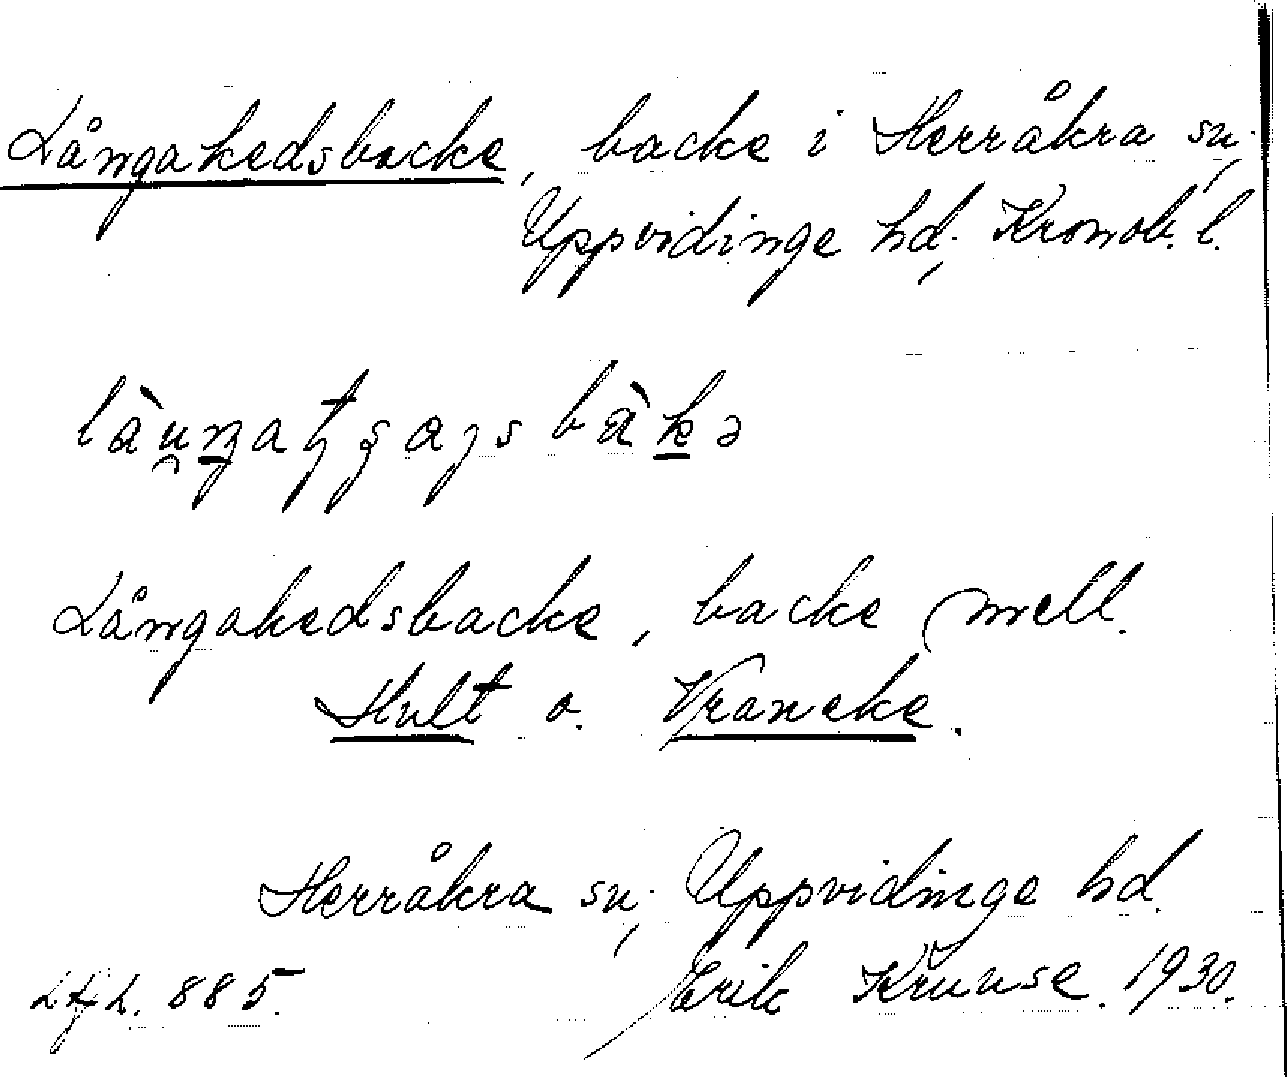 Långakedsbacke, backe i Herråkra sn,
Uppvidinge hd, Kronob. l.
Långakedsbacke, backe mell.
Hult o. Vrancke.
Herråkra sn, Uppvidinge hd.
885. Erik Kruuse. 1930.